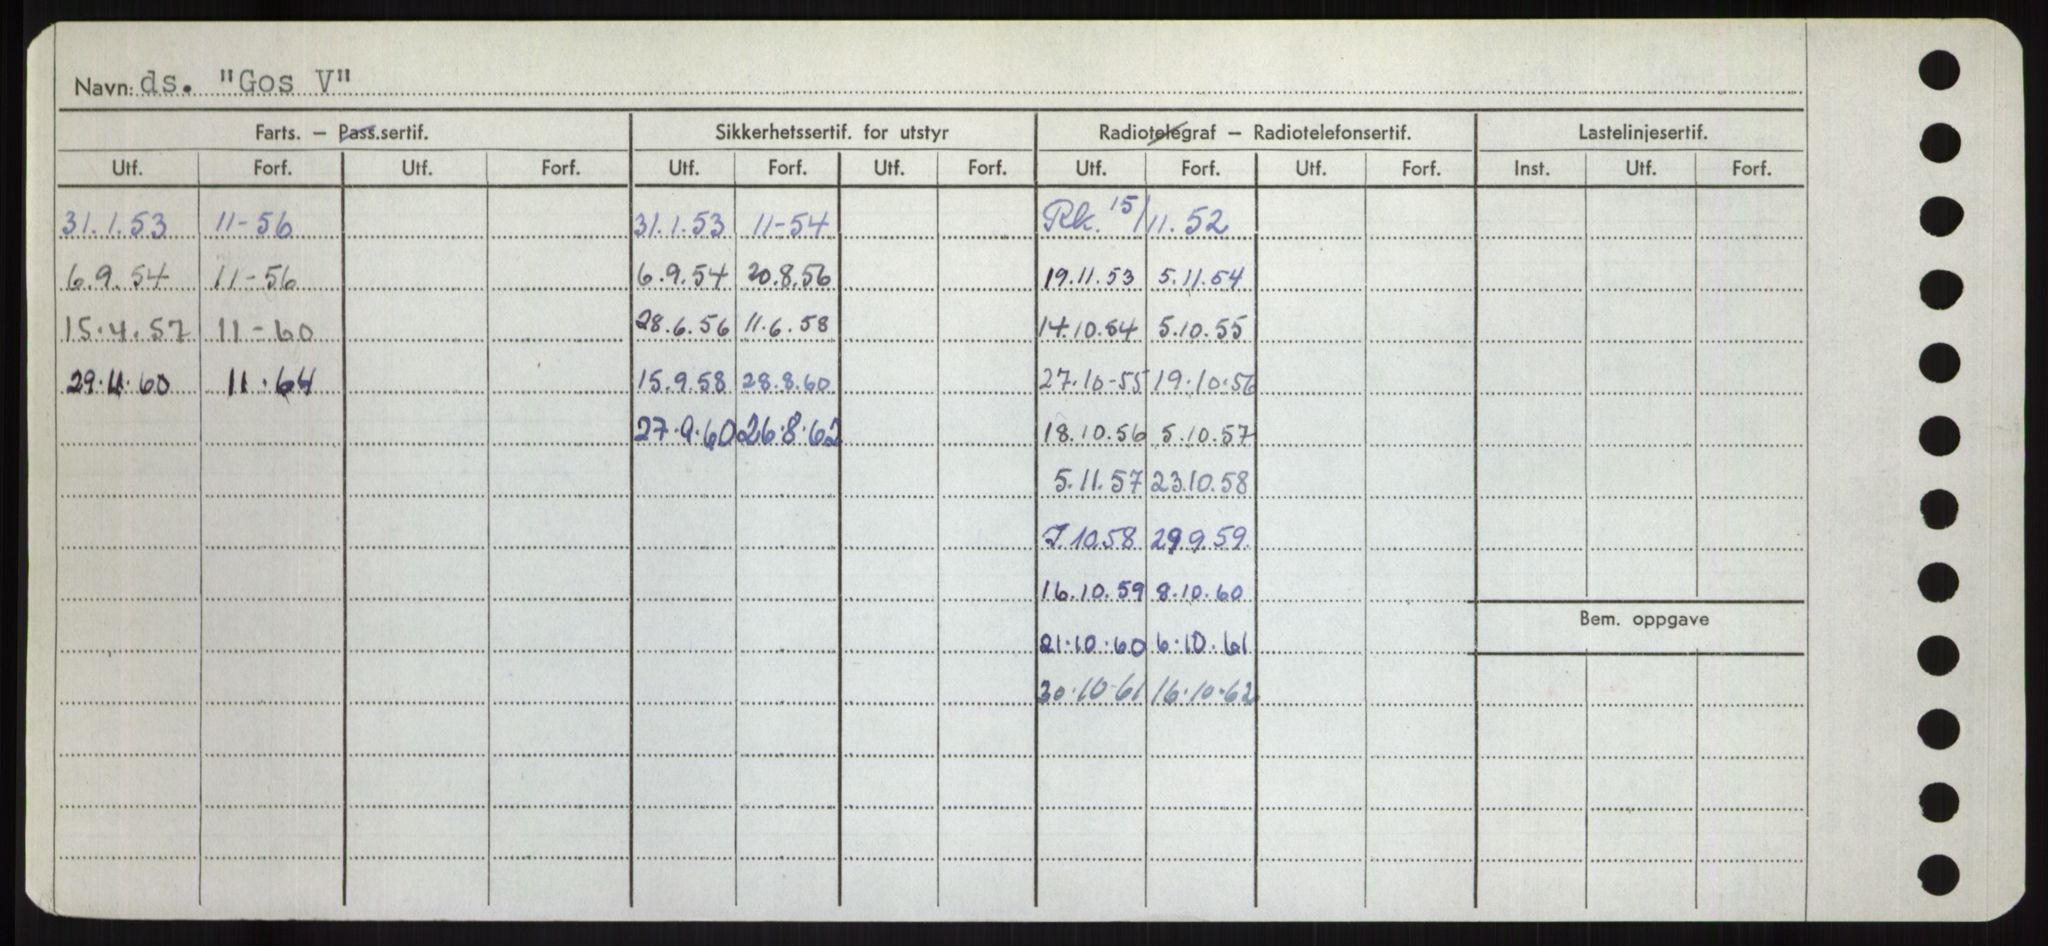 Navn: ds. "Gos V"
Farts. – Pass.sertif. Sikkerhetssertif. for utstyr Radiotelegraf – Radiotelefonsertif. Lastelinjesertif.
Utf. Forf. Utf. Forf. Utf. Forf. Utf. Forf. Utf. Forf. Utf. Forf. Inst. Utf. Forf.
31.1.53 11-56 31.1.53 11-54 Rk. 15/11.52
6.9.54 11-56 6.9.54 20.8.56 19.11.53 5.11.54
15.4.57 11-60 28.6.56 11.6.58 14.10.54 5.10.55
29.11.60 11.64 15.9.58 28.8.60 27.10-55 19.10.56
27.9.60 26.8.62 18.10.56 5.10.57
5.11.57 23.10.58
7.10.58 29.9.59
16.10.59 8.10.60
Bem. oppgave
21.10.60 6.10.61
30.10.61 16.10.62